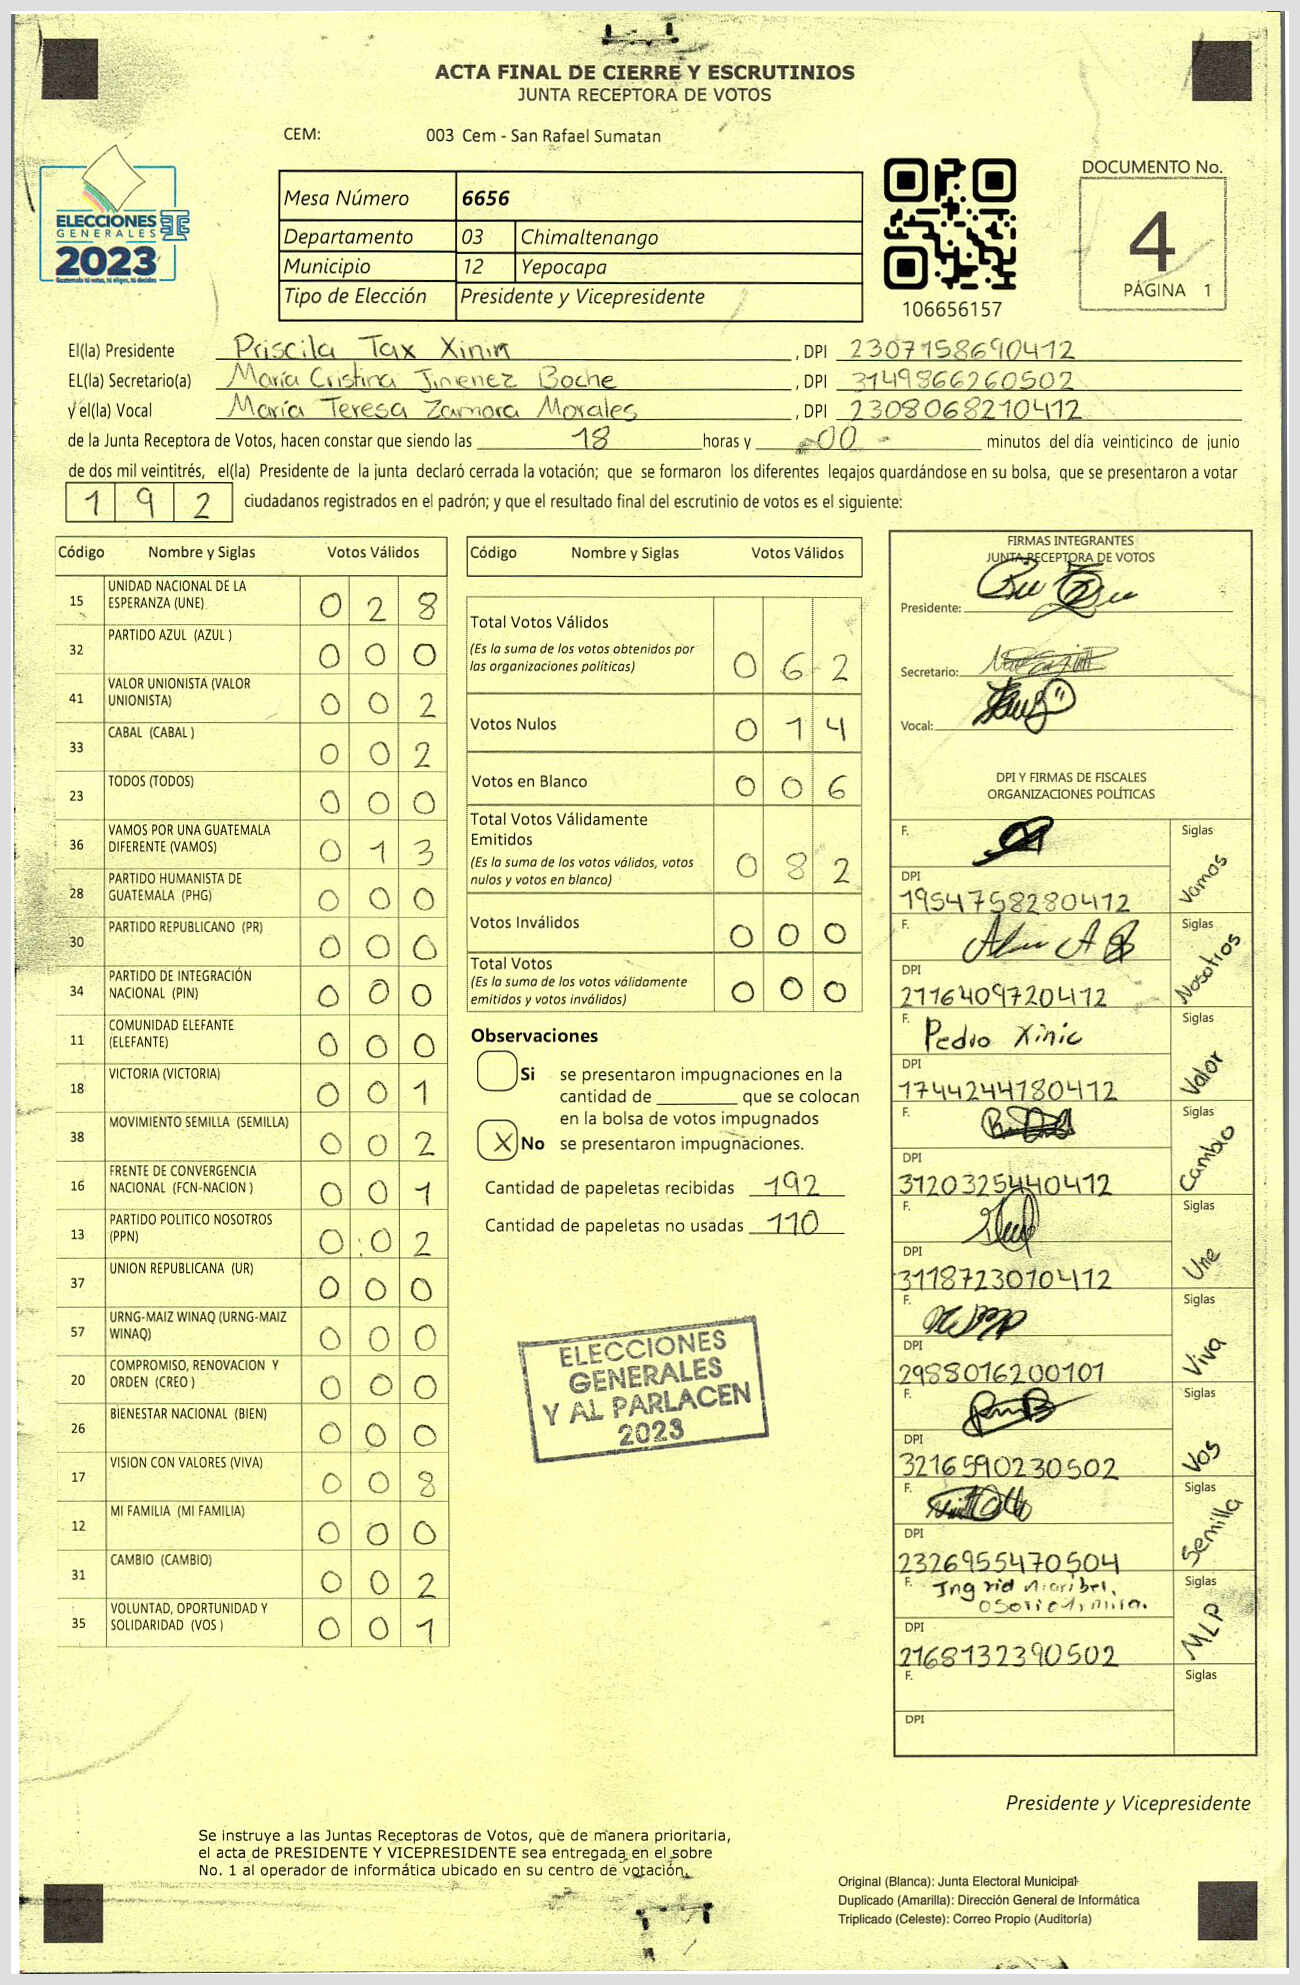 ACTA FINAL DE CIERRE Y ESCRUTINIOS
JUNTA RECEPTORA DE VOTOS
CEM: 003 Cem - San Rafael Sumatan
ELECCIONES
GENERALES
2023
Mesa Número 6656
Departamento 03 Chimaltenango
Municipio 12 Yepocapa
Tipo de Elección Presidente y Vicepresidente
106656157
DOCUMENTO No.
4
PÁGINA 1
El(la) Presidente Priscila Tax Xinin, DPI 2307158690412
EL(la) Secretario(a) María Cristina Jimenez Boche, DPI 3149866260502
y el(la) Vocal María Teresa Zamora Morales, DPI 2308068210412
de la Junta Receptora de Votos, hacen constar que siendo las 18 horas y 00 minutos del día veinticinco de junio
de dos mil veintitrés, el(la) Presidente de la junta declaró cerrada la votación; que se formaron los diferentes legajos quardándose en su bolsa, que se presentaron a votar
192 ciudadanos registrados en el padrón; y que el resultado final del escrutinio de votos es el siguiente:
Código Nombre y Siglas Votos Válidos
15 UNIDAD NACIONAL DE LA ESPERANZA (UNE) 0 2 8
32 PARTIDO AZUL (AZUL ) 0 0 0
41 VALOR UNIONISTA (VALOR UNIONISTA) 0 0 2
33 CABAL (CABAL ) 0 0 2
23 TODOS (TODOS) 0 0 0
36 VAMOS POR UNA GUATEMALA DIFERENTE (VAMOS) 0 1 3
28 PARTIDO HUMANISTA DE GUATEMALA (PHG) 0 0 0
30 PARTIDO REPUBLICANO (PR) 0 0 0
34 PARTIDO DE INTEGRACIÓN NACIONAL (PIN) 0 0 0
11 COMUNIDAD ELEFANTE (ELEFANTE) 0 0 0
18 VICTORIA (VICTORIA) 0 0 1
38 MOVIMIENTO SEMILLA (SEMILLA) 0 0 2
16 FRENTE DE CONVERGENCIA NACIONAL (FCN-NACION ) 0 0 1
13 PARTIDO POLITICO NOSOTROS (PPN) 0 0 2
37 UNION REPUBLICANA (UR) 0 0 0
57 URNG-MAIZ WINAQ (URNG-MAIZ WINAQ) 0 0 0
20 COMPROMISO, RENOVACION Y ORDEN (CREO ) 0 0 0
26 BIENESTAR NACIONAL (BIEN) 0 0 0
17 VISION CON VALORES (VIVA) 0 0 8
12 MI FAMILIA (MI FAMILIA) 0 0 0
31 CAMBIO (CAMBIO) 0 0 2
35 VOLUNTAD, OPORTUNIDAD Y SOLIDARIDAD (VOS ) 0 0 1
Código Nombre y Siglas Votos Válidos
Total Votos Válidos 0 6 2
(Es la suma de los votos obtenidos por
las organizaciones políticas)
Votos Nulos 0 1 4
Votos en Blanco 0 0 6
Total Votos Válidamente
Emitidos 0 8 2
(Es la suma de los votos válidos, votos
nulos y votos en blanco)
Votos Inválidos 0 0 0
Total Votos 0 0 0
(Es la suma de los votos válidamente
emitidos y votos inválidos)
Observaciones
Si se presentaron impugnaciones en la
cantidad de ________ que se colocan
en la bolsa de votos impugnados
X No se presentaron impugnaciones.
Cantidad de papeletas recibidas 192
Cantidad de papeletas no usadas 110
ELECCIONES
GENERALES
Y AL PARLACEN
2023
FIRMAS INTEGRANTES
JUNTA RECEPTORA DE VOTOS
Presidente:
Secretario:
Vocal:
DPI Y FIRMAS DE FISCALES
ORGANIZACIONES POLÍTICAS
F. Siglas Vamos
DPI 1954758280412
F. Siglas Nosotros
DPI 2116409720412
F. Pedro Xinic Siglas Valor
DPI 1744244180412
F. Siglas Cambio
DPI 3120325440412
F. Siglas Une
DPI 3118723010412
F. Siglas Viva
DPI 2988016200101
F. Siglas Vos
DPI 3216590230502
F. Siglas Semilla
DPI 2326955470504
F. Ingrid Maribel Siglas MLP
DPI 2168132390502
F. Siglas
DPI
Presidente y Vicepresidente
Se instruye a las Juntas Receptoras de Votos, que de manera prioritaria,
el acta de PRESIDENTE Y VICEPRESIDENTE sea entregada en el sobre
No. 1 al operador de informática ubicado en su centro de votación.
Original (Blanca): Junta Electoral Municipal
Duplicado (Amarilla): Dirección General de Informática
Triplicado (Celeste): Correo Propio (Auditoría)